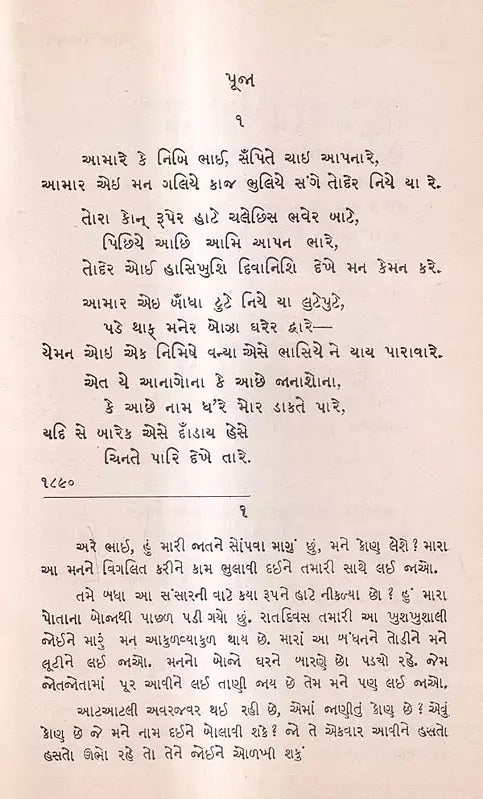 પૂજા
૧
આમારે કે નિબિ ભાઈ, સઁપિતે ચાઇ આપનારે,
આમાર એઇ મન ગલિયે કાજ ભુલિયે સંગે તોદેર નિયે યા રે.
તોરા કોન્ રૂપેર હાટે ચલેછિસ ભવેર બાટે,
પિછિયે આછિ આમિ આપન ભારે,
તોદેર ઓઈ હાસિખુશિ દિવાનિશિ દેખે મન કેમન કરે.
આમાર એઇ બાઁધા ટુટે નિયે યા લુટેપુટે,
પડે થાક્ મનેર બોઝા ઘરેર દ્વારે—
યેમન ઓઇ એક નિમિષે વન્યા એસે ભાસિયે ને યાય પારાવારે.
એત યે આનાગોના કે આછે જાનાશોના,
કે આછે નામ ધ'રે મોર ડાકતે પારે,
યદિ સે બારેક એસે દાઁડાય હેસે
ચિનતે પારિ દેખે તારે.
૧૮૯૦
૧
અરે ભાઈ, હું મારી જાતને સોંપવા માગું છું, મને કોણ લેશે? મારા
આ મનને વિગલિત કરીને કામ ભુલાવી દઈને તમારી સાથે લઈ જાઓ.
તમે બધા આ સંસારની વાટે કયા રૂપને હાટે નીકળ્યા છો? હું મારા
પોતાના બોજથી પાછળ પડી ગયો છું. રાતદિવસ તમારી આ ખુશખુશાલી
જોઈને મારું મન આકુળવ્યાકુળ થાય છે. મારાં આ બંધનને તોડીને મને
લૂટીને લઈ જાઓ. મનનો બોજો ઘરને બારણે છો પડયો રહે. જેમ
જોતજોતામાં પૂર આવીને લઈ તાણી જાય છે તેમ મને પણ લઈ જાઓ.
આટઆટલી અવરજવર થઈ રહી છે, એમાં જાણીતું કોણ છે? એવું
કોણ છે જે મને નામ દઈને બોલાવી શકે? જો તે એકવાર આવીને હસતો
હસતો ઊભો રહે તો તેને જોઈને ઓળખી શકું